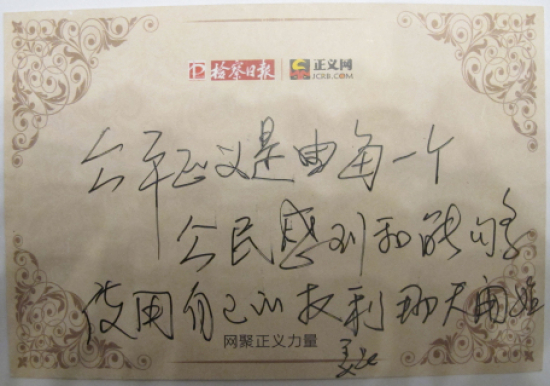 检察日报 正义网
JCRB.COM
公平正义是由每一个
公民感到和能够
使用自己的权利那天开始
网聚正义力量